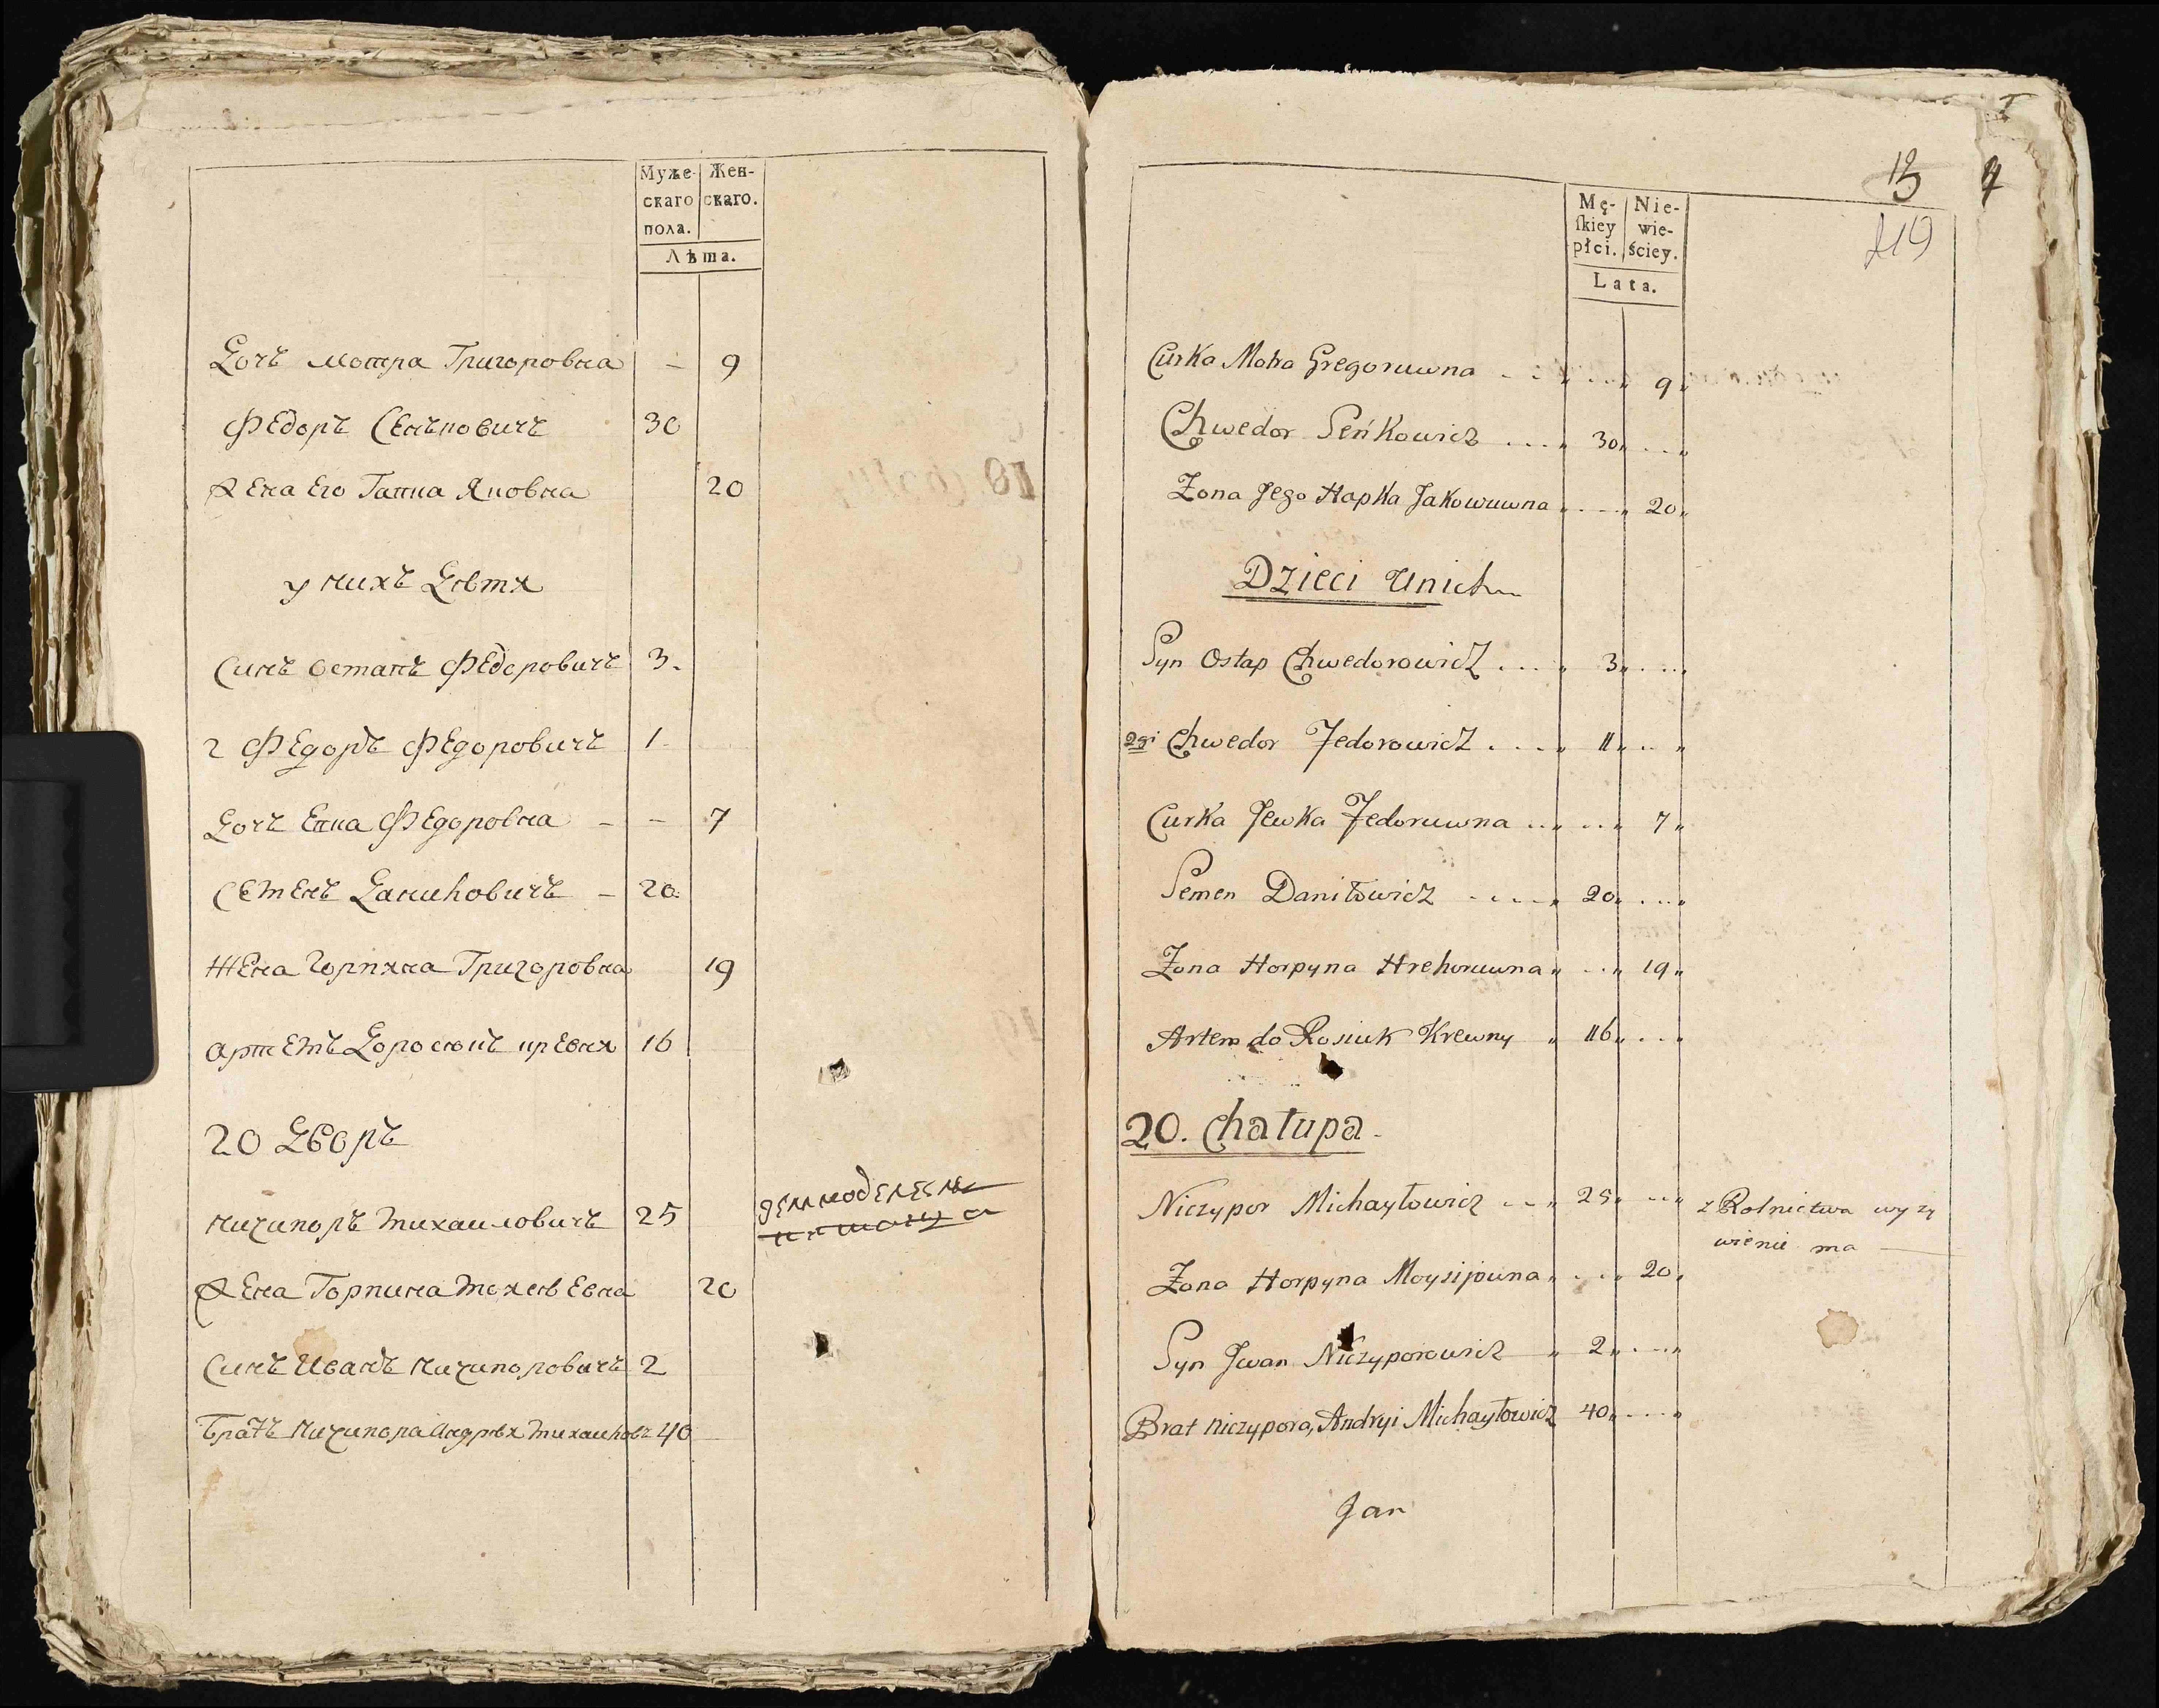 Муже-
скаго
пола.
Жен-
скаго.
Лѣта.
Дочъ мотра Григоровна — 9
Федоръ Сенковичъ 30
Жена Его Гапка Яковна 20
у нихъ Дѣтя
Синъ Остапъ Федоровичъ 3.
2 Федоръ Федоровичъ 1
Дочъ Евка Федоровна — — 7
Семенъ Даниловичъ — 20
Жена Горпина Григоровна 19
Артемъ Доросюкъ кревня 16
20 Дворъ
Ничипоръ михаиловичъ 25
Жена Горпина Мосѣевна 20
Синъ Иванъ Ничипоровичъ 2
Братъ Ничипора Андрѣя михаилов 40
13 4
119
Mę-
ſkiey
płci.
Nie-
wie-
ściey.
Lata.
Curka Motra Gregoruwna 9
Chwedor Seńkowicz 30
Zona Jego Hapka Jakowuwna 20
Dzieci Unich
Syn Ostap Chwedorowicz 3
2gi Chwedor Fedorowicz 1
Curka Jewka Fedoruwna 7
Semen Daniłowicz 20
Zona Horpyna Hrehoruwna 19
Artem do Rosiuk Krewny 16
20. Chałupa
Niczypor Michayłowicz 25 z Rolnictwa wyzy
wienie ma
Zona Horpyna Moysijowna 20
Syn Jwan Niczyporowicz 2
Brat Niczypora, Andryi Michayłowicz 40
Jan